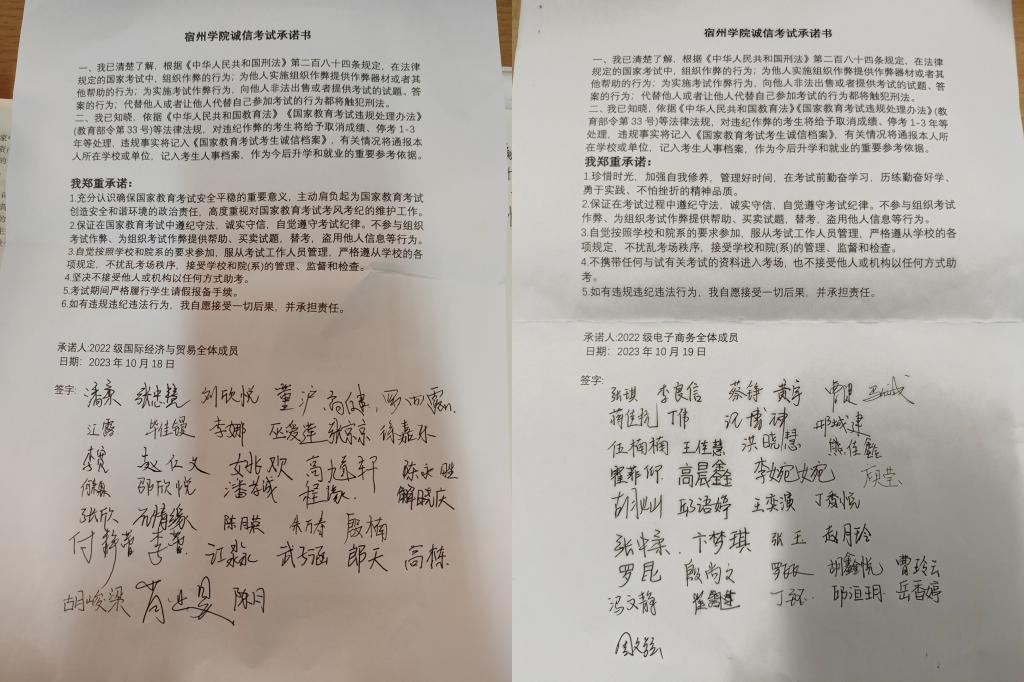 宿州学院诚信考试承诺书
一、我已清楚了解，根据《中华人民共和国刑法》第二百八十四条规定，在法律
规定的国家考试中，组织作弊的行为；为他人实施组织作弊提供作弊器材或者其
他帮助的行为；为实施考试作弊行为，向他人非法出售或者提供考试的试题、答
案的行为；代替他人或者让他人代替自己参加考试的行为都将触犯刑法。
二、我已知晓，依据《中华人民共和国教育法》《国家教育考试违规处理办法》
(教育部令第 33 号)等法律法规，对违纪作弊的考生将给予取消成绩、停考 1-3
年等处理，违规事实将记入《国家教育考试考生诚信档案》，有关情况将通报本人
所在学校或单位，记入考生人事档案，作为今后升学和就业的重要参考依据。
我郑重承诺：
1.充分认识确保国家教育考试安全平稳的重要意义，主动肩负起为国家教育考试
创造安全和谐环境的政治责任，高度重视对国家教育考试考风考纪的维护工作。
2.保证在国家教育考试中遵纪守法，诚实守信，自觉遵守考试纪律。不参与组织
考试作弊、为组织考试作弊提供帮助、买卖试题，替考，盗用他人信息等行为。
3.自觉按照学校和院系的要求参加，服从考试工作人员管理，严格遵从学校的各
项规定，不扰乱考场秩序，接受学校和院(系)的管理、监督和检查。
4.坚决不接受他人或机构以任何方式助考。
5.考试期间严格履行学生请假报备手续。
6.如有违规违纪违法行为，我自愿接受一切后果，并承担责任。
承诺人:2022 级国际经济与贸易全体成员
日期：2023 年 10 月 18 日
签字:
刘欣悦 董沪
江雪 李娜 巫爱莲 张京京 徐嘉怀
李宽 赵仁义 姚欢 陈永胜
邵欣悦 程缘 解晓庆
张欣 陈月荣 殷楠
付静蕾 江淼 武子涵 郎天 高栋
胡峻梁 陈月
宿州学院诚信考试承诺书
一、我已清楚了解，根据《中华人民共和国刑法》第二百八十四条规定，在法律
规定的国家考试中，组织作弊的行为；为他人实施组织作弊提供作弊器材或者其
他帮助的行为；为实施考试作弊行为，向他人非法出售或者提供考试的试题、答
案的行为；代替他人或者让他人代替自己参加考试的行为都将触犯刑法。
二、我已知晓，依据《中华人民共和国教育法》《国家教育考试违规处理办法》(
教育部令第 33 号)等法律法规，对违纪作弊的考生将给予取消成绩、停考 1-3 年等
处理，违规事实将记入《国家教育考试考生诚信档案》，有关情况将通报本人所
在学校或单位，记入考生人事档案，作为今后升学和就业的重要参考依据。
我郑重承诺：
1.珍惜时光，加强自我修养，管理好时间，在考试前勤奋学习，历练勤奋好学、
勇于实践、不怕挫折的精神品质。
2.保证在考试过程中遵纪守法，诚实守信，自觉遵守考试纪律。不参与组织考试
作弊、为组织考试作弊提供帮助、买卖试题，替考，盗用他人信息等行为。
3.自觉按照学校和院系的要求参加，服从考试工作人员管理，严格遵从学校的各
项规定，不扰乱考场秩序，接受学校和院(系)的管理、监督和检查。
4.不携带任何与试有关考试的资料进入考场，也不接受他人或机构以任何方式助
考。
5.如有违规违纪违法行为，我自愿接受一切后果，并承担责任。
承诺人:2022 级电子商务全体成员
日期：2023 年 10 月 19 日
签字:
张琪 李良信 蔡铮 黄宇
丁伟 沈博砷 邢城建
伍楠楠 王佳慧 洪晓慧 熊佳鑫
霍菲仰 高晨鑫 李婉婉 顾莹
邱语婷 王奕演 丁香悦
卞梦琪 张玉 赵月玲
罗昆 殷尚文 胡鑫悦 曹玲云
冯文静 邱洹玥 岳香婷